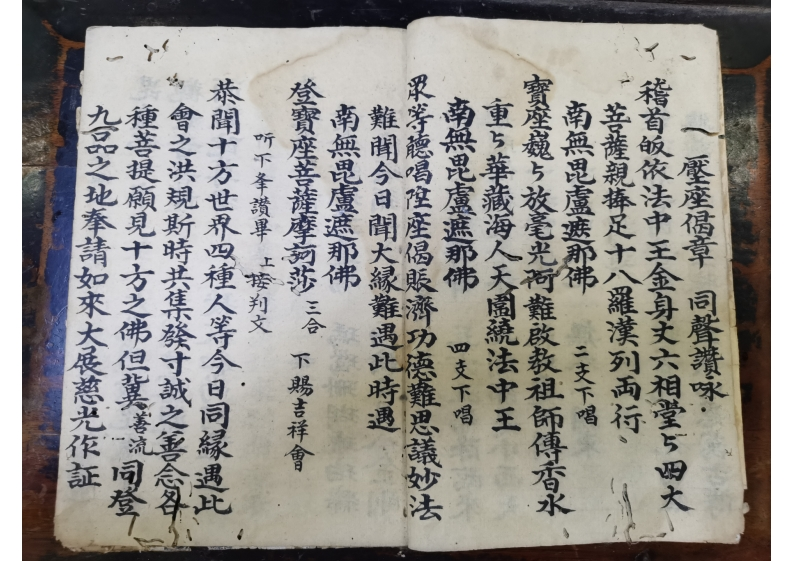 一 壓座偈章 同聲讃咏.
稽首皈依法中王金身丈六相堂ㄣ四大
菩薩親捧足十八羅漢列両行
南無毘盧遮那佛 二支下唱
寶座巍ㄣ放毫光阿難啟教祖師傳香水
重ㄣ華藏海人天圍繞法中王
南無毘盧遮那佛 四支下唱
眾等聽唱陞座偈賑濟功德難思議妙法
難聞今日聞大縁難遇此時遇
南無毘盧遮那佛
登寶座菩薩摩訶莎 三合 下賜吉祥會
听下夆讃畢 上按判文
恭聞十方世界四種人等今日同縁遇此
會之洪規斯時共集發寸誠之善念各
種菩提願見十方之佛但冀善流同登
九品之地奉請如來大展慈光作証